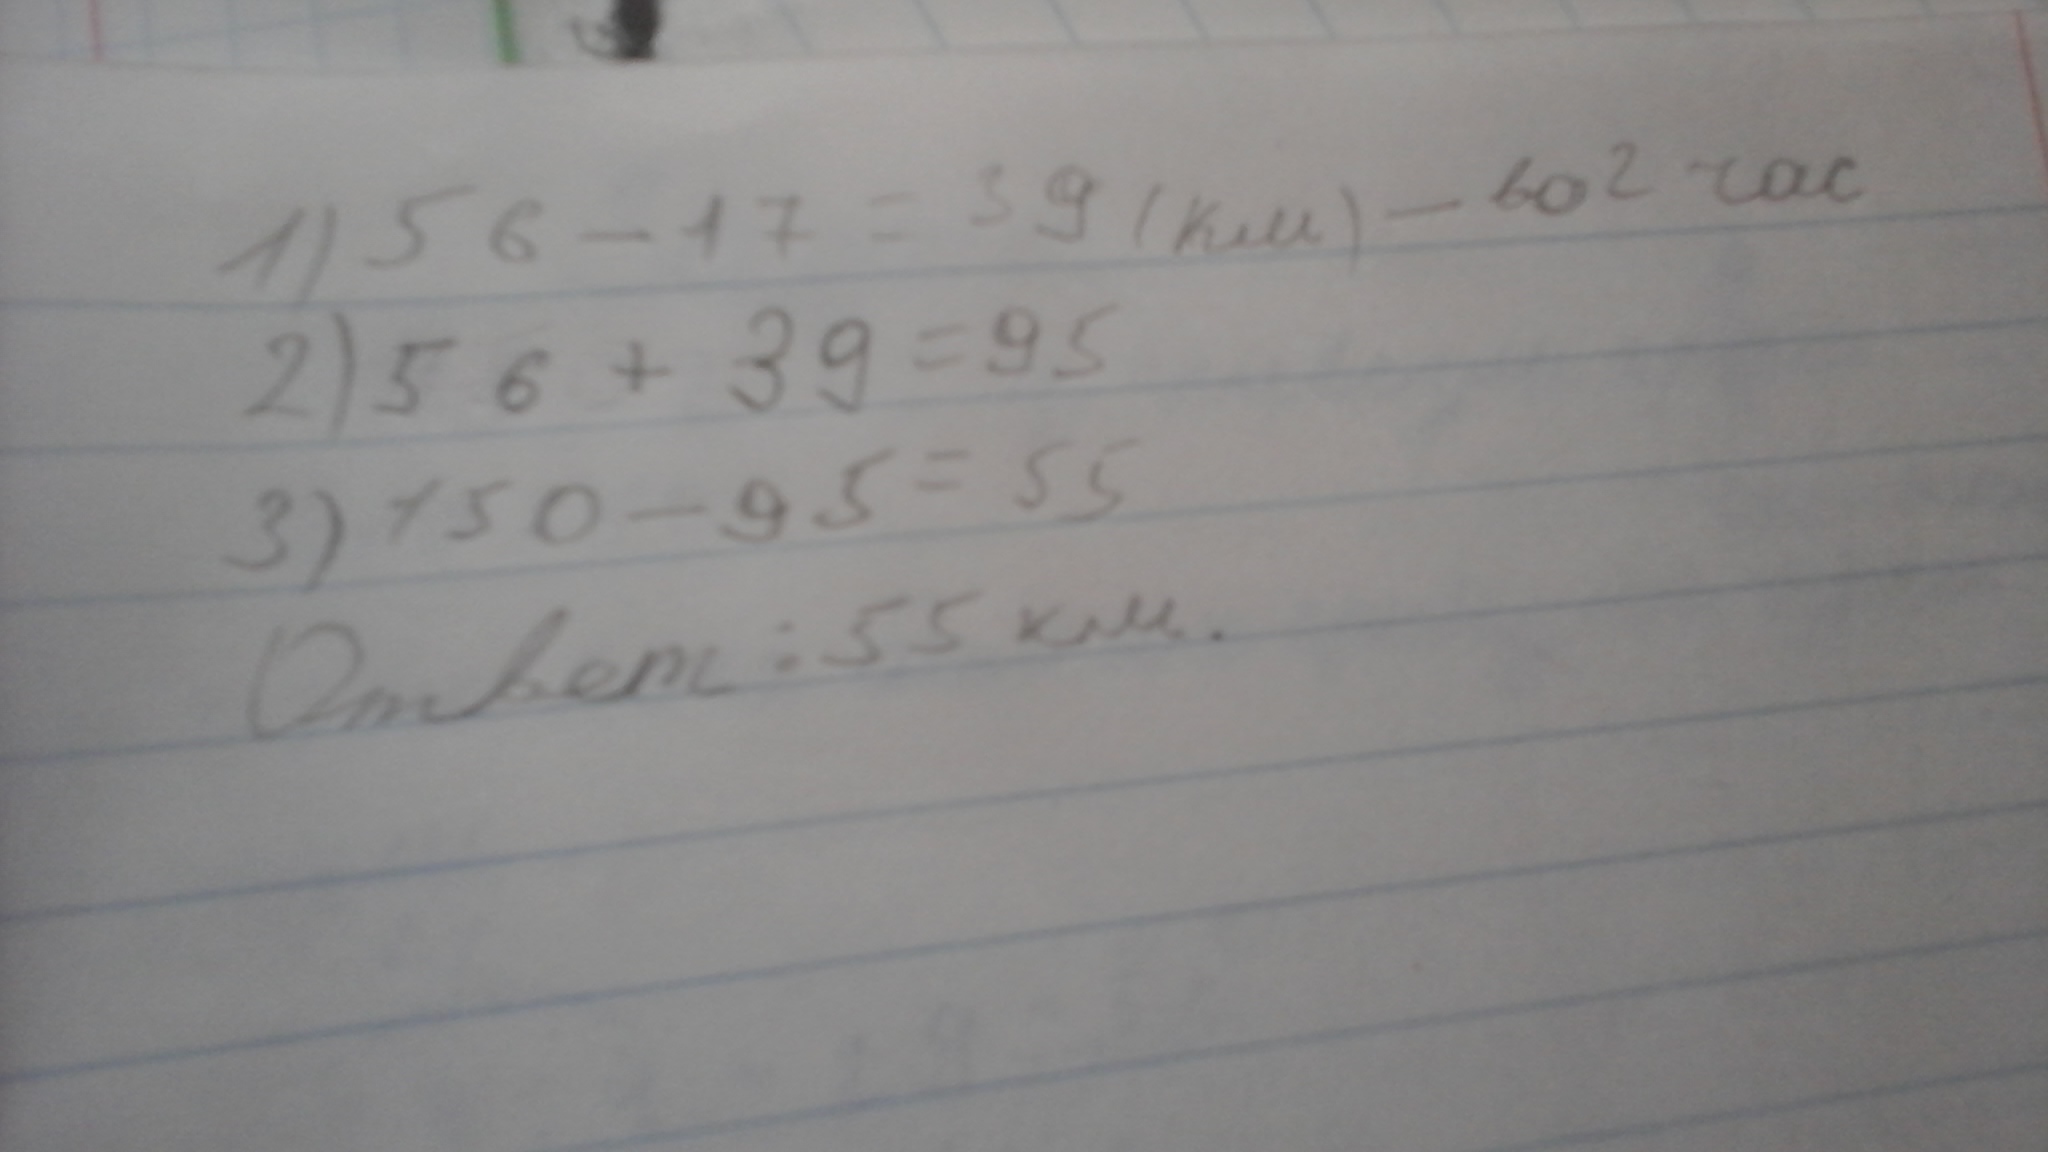 1) 56 - 17 = 39 (км) - во 2 час
2) 56 + 39 = 95
3) 150 - 95 = 55
Ответ: 55 км.